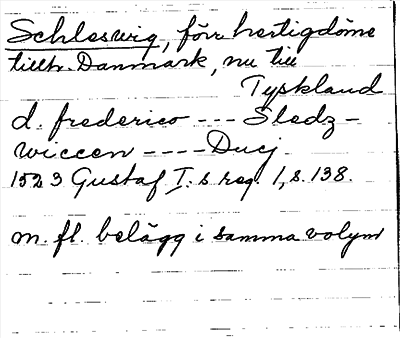 Schleswig, förr hertigdöme
tillh. Danmark, nu till
Tyskland
d. frederico --- Sledz-
wiccen ---- Ducj.
1523 Gustaf I:s reg. 1, s. 138.
m. fl. belägg i samma volym